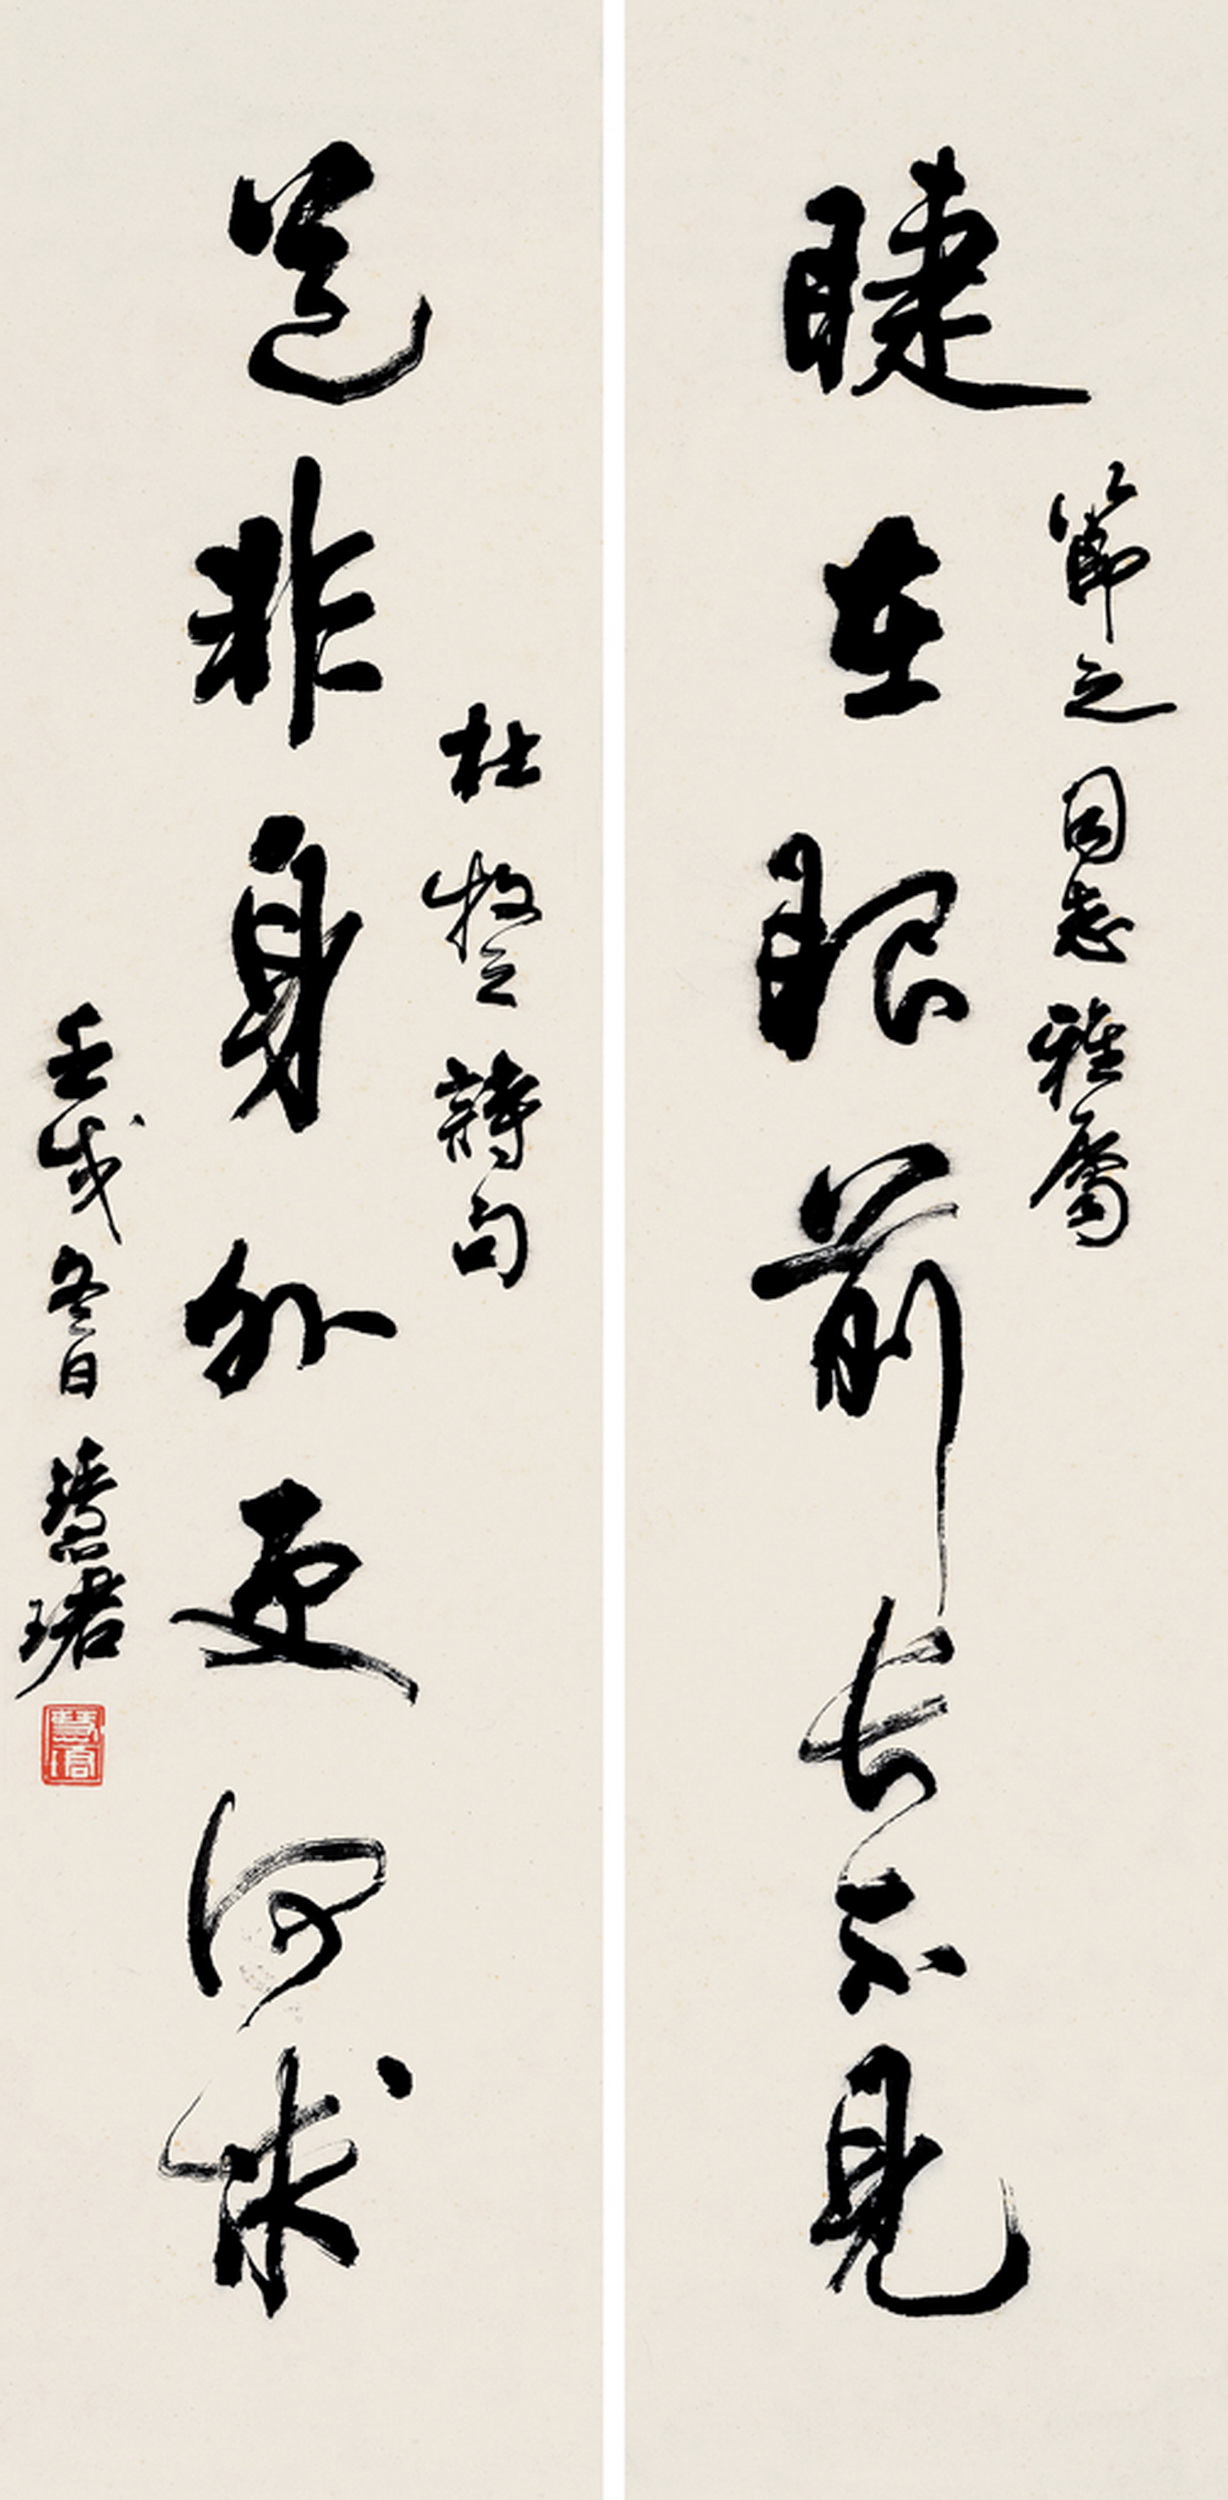 節之同志雅屬
睫在眼前长不見
道非身外更何求
杜牧之詩句
壬戌冬日慧珺